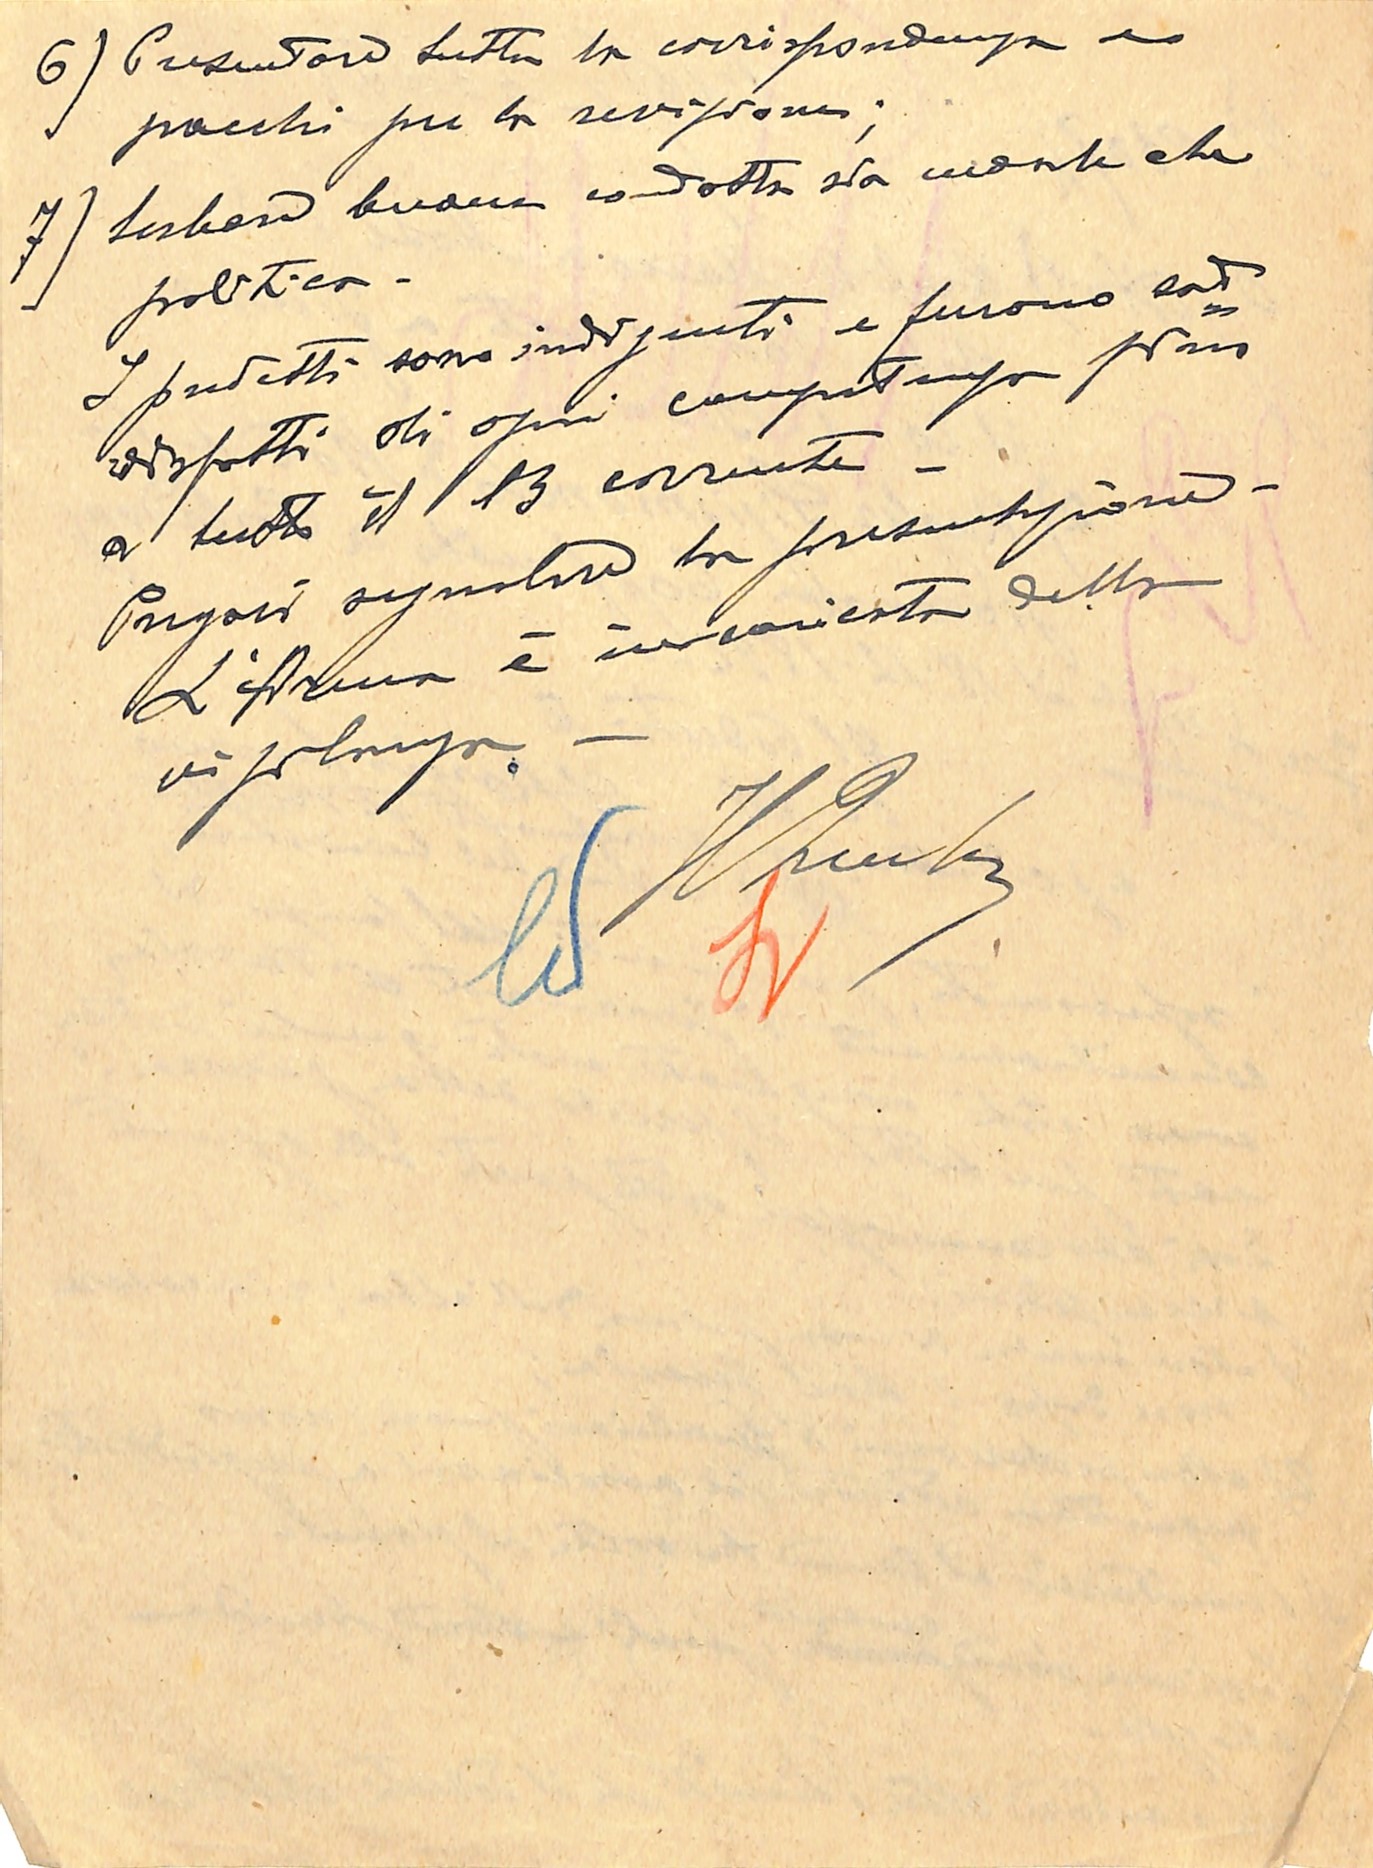 6) Presentare tutta la corrispondenza e
pacchi per la revisione;
7) Serbare buona condotta sia morale che
politica -
I predetti sono indigenti e furono sod=
disfatti di ogni competenza fino
a tutto il 13 corrente -
Pregasi segnalare la presentazione -
L'Arma è incaricata della
vigilanza. -